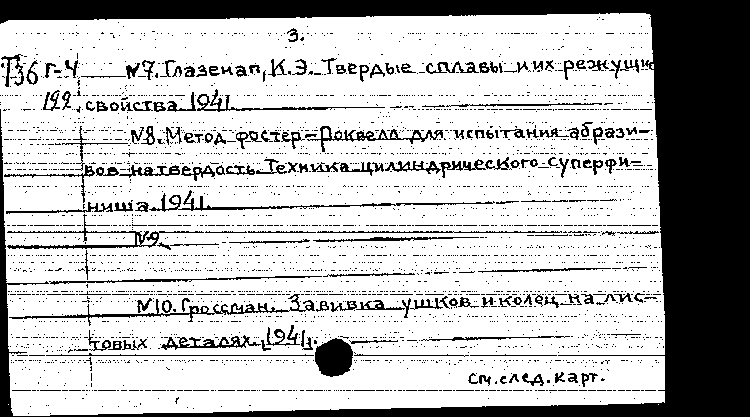 3.
Т36 Г-4 №7. Глазенап, К.Э. Твердые сплавы и их режущие
199 свойства 1941.
№8. Метод фостер-Роквелл для испытания абрази-
вов на твердость. Техника цилиндрического суперфи-
ниша. 1941.
№9.
№10. Гроссман. Завивка ушков и колец на лис-
товых деталях. 1941.
см. след. карт.